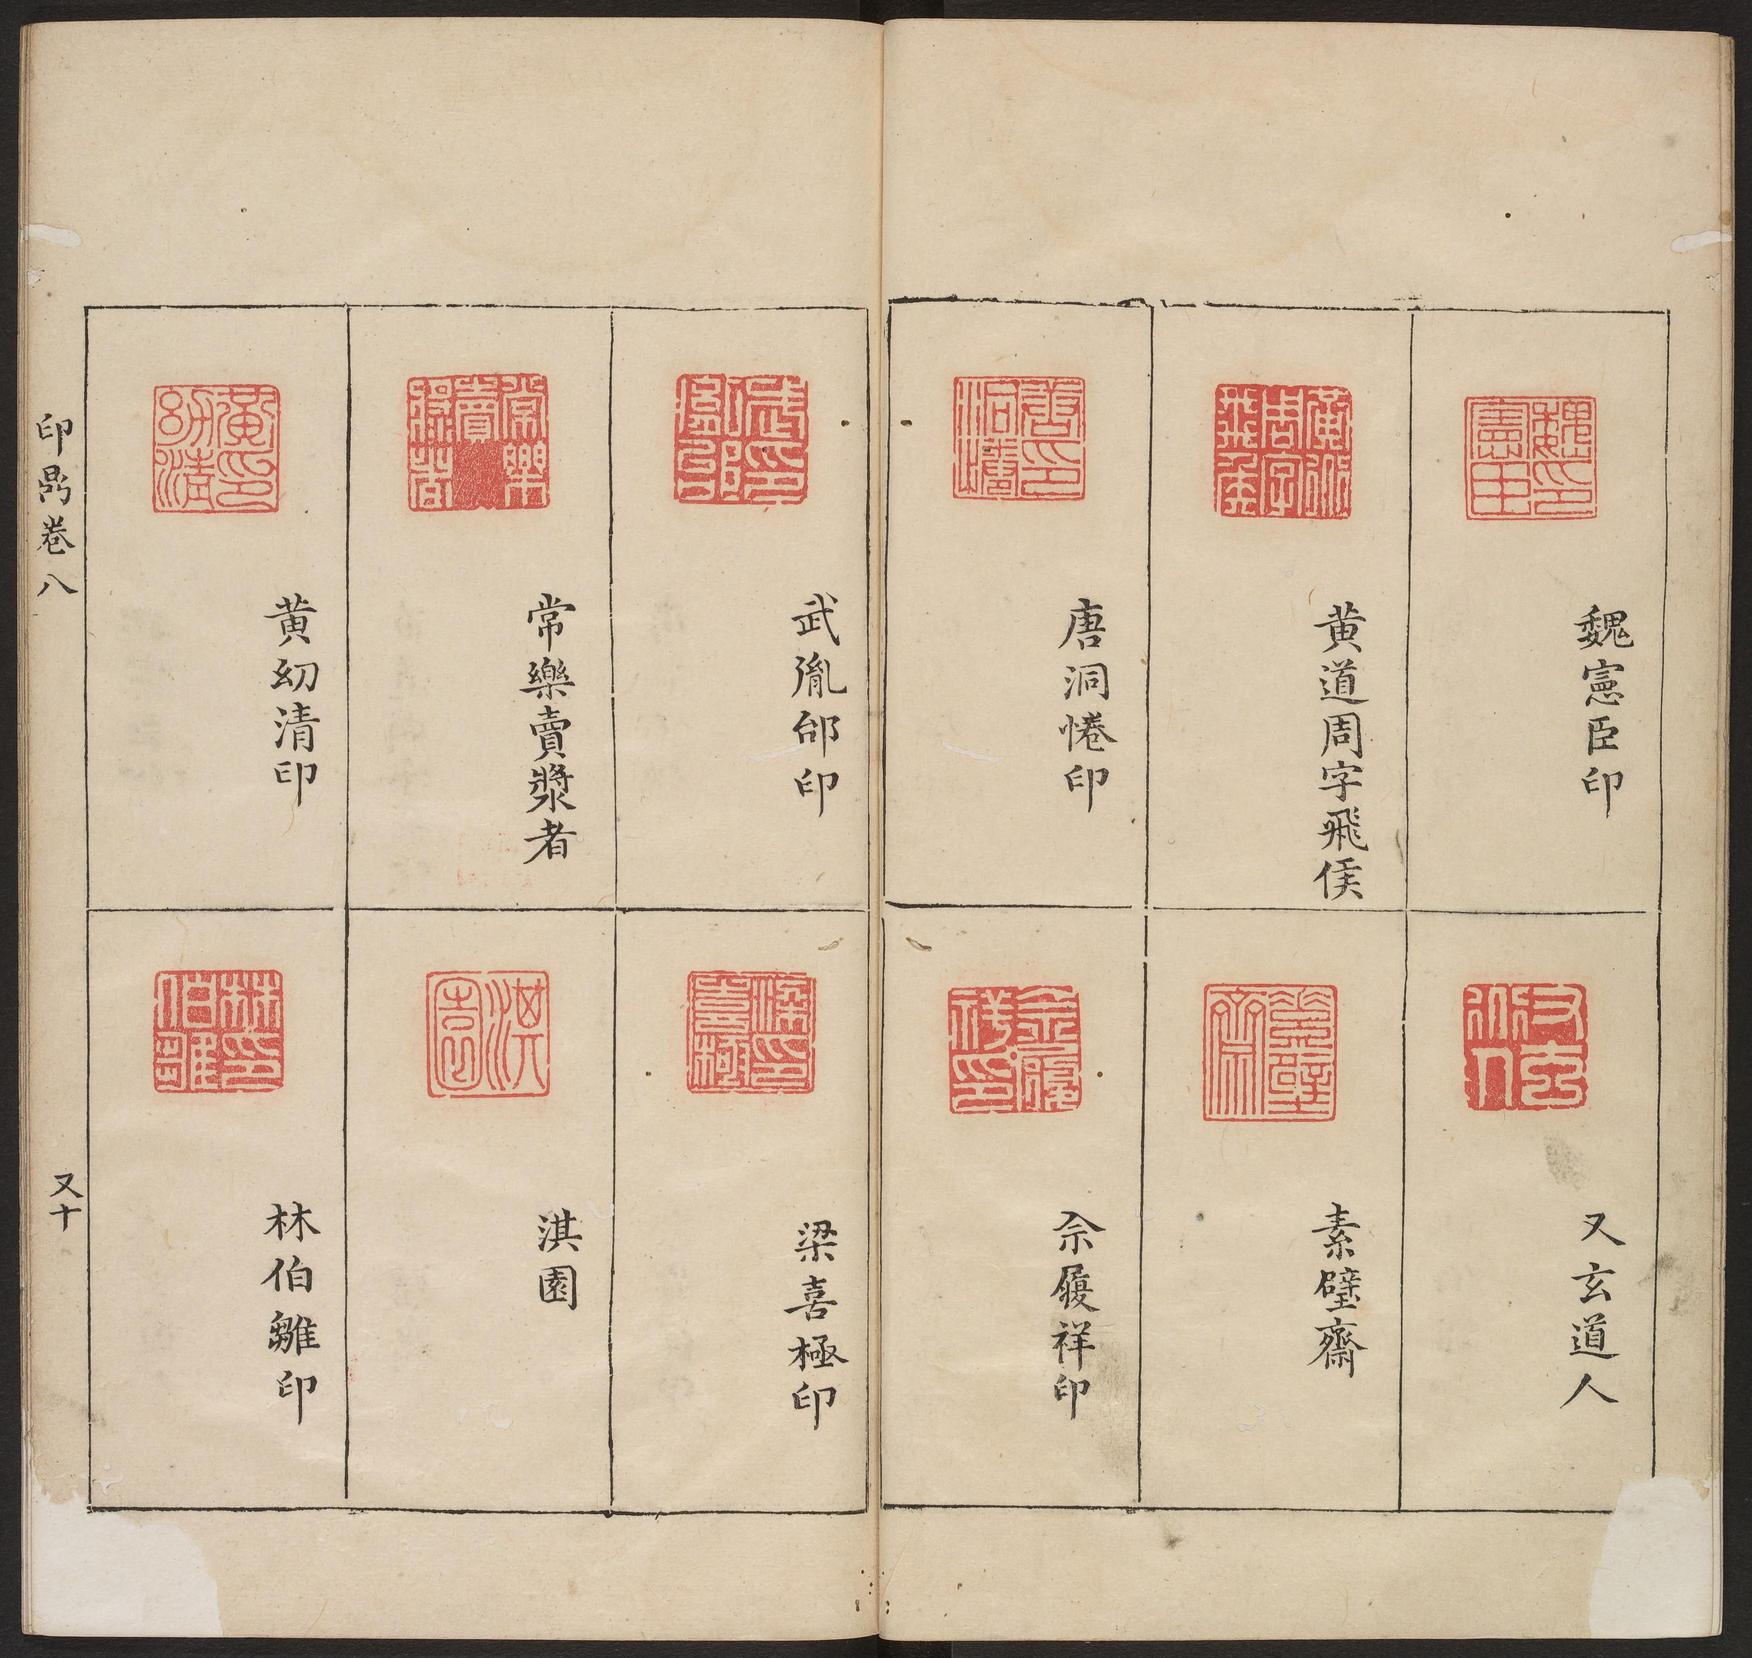 魏憲臣印
又玄道人
黄道周字飛侯
素璧齋
唐洞惓印
佘履祥印
武胤邰印
梁喜極印
常樂賣漿者
淇園
黄幼清印
林伯雛印
印鼎卷八
又十